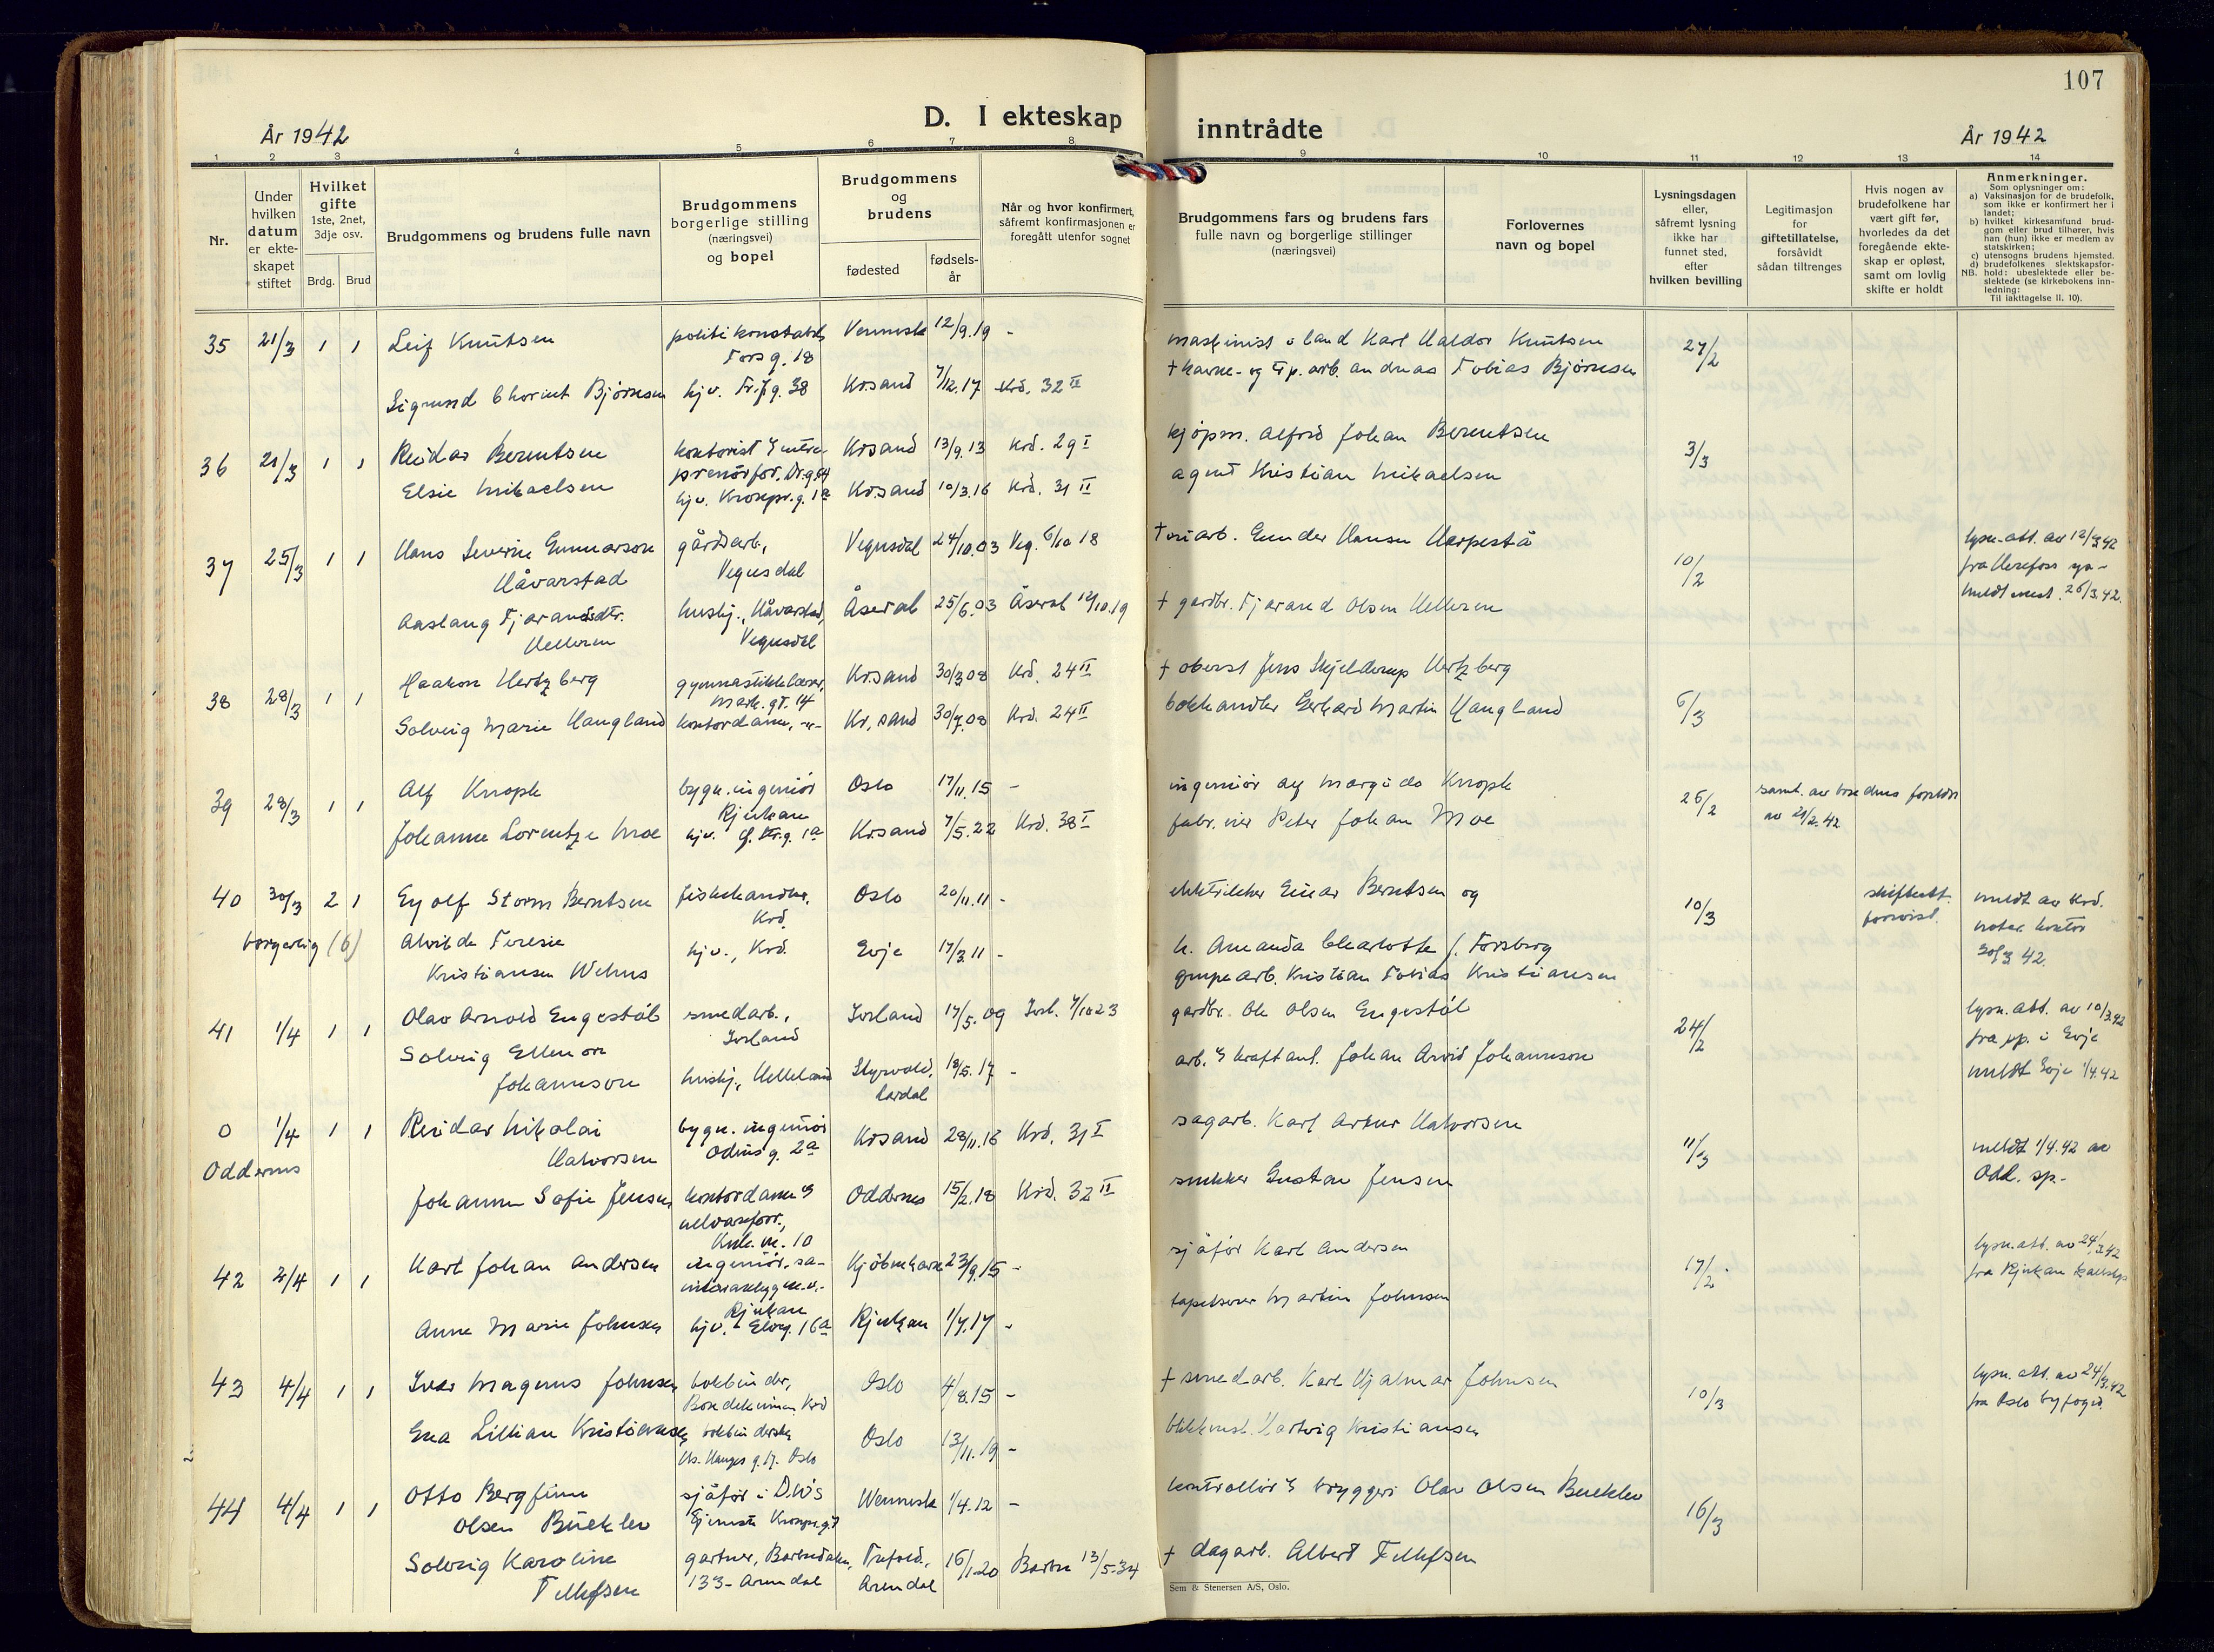 107
D. I ekteskap inntrådte
År 1942
År 1942
1 2 3 4 5 6 7 8 9 10 11 12 13 14
Nr.
Under
hvilken
datum
er ekte-
skapet
stiftet
Hvilket
gifte
1ste, 2net,
3dje osv.
Brdg. Brud
Brudgommens og brudens fulle navn
Brudgommens
borgerlige stilling
(næringsvei)
og bopel
Brudgommens
og
brudens
fødested
fødsels-
år
Når og hvor konfirmert,
såfremt konfirmasjonen er
foregått utenfor sognet
Brudgommens fars og brudens fars
fulle navn og borgerlige stillinger
(næringsvei)
Forlovernes
navn og bopel
Lysningsdagen
eller,
såfremt lysning
ikke har
funnet sted,
efter
hvilken bevilling
Legitimasjon
for
giftetillatelse,
forsåvidt
sådan tiltrenges
Hvis nogen av
brudefolkene har
vært gift før,
hvorledes da det
foregående ekte-
skap er opløst,
samt om lovlig
skifte er holdt
Anmerkninger.
Som oplysninger om:
a) Vaksinasjon for de brudefolk,
som ikke er konfirmert her i
landet;
b) hvilket kirkesamfund brud-
gom eller brud tilhører, hvis
han (hun) ikke er medlem av
statskirken;
c) utensogns brudens hjemsted.
d) brudefolkenes slektskapsfor-
NB. hold: ubeslektede eller be-
slektede (se kirkebokens inn-
ledning:
Til iakttagelse II, 10).
35 21/3 1 1 Leif Knutsen politikonstabel Vennesla 12/9.19 - maskinist i land Karl Haldor Knutsen 27/2
Torsg. 18
Sigrund Bjørnsen hjv. 38 Kr.sand 7/12.17 Krd. 32 II † havne- og arb. Andreas Tobias Bjørnsen
36 21/3 1 1 Reidar Berentsen kontorist Kr.sand 13/9.13 Krd. 29 I kjøpm. Alfred Johan Berentsen 3/3
Elsie Mikaelsen hjv. Kronpr.g. 1a Kr.sand 10/3.16 Krd. 31 II agent Kristian Mikaelsen
37 25/3 1 1 Hans Severin Gunnarson gårdsarb., Vegusdal 24/10.03 Veg. 6/10 18 Gunder Hansen Harpestå 10/2 lysn.att. av 12/3.42
Håvarstad Vegusdal fra Herefoss sp-
Aaslaug Fjarandsdtr. hushj., Håvarstad, Åseral 25/6.03 Åseral 12/10.19 † gardbr. Fjarand Olsen Helleren meldt 26/3.42.
Helleren Vegusdal
38 28/3 1 1 Haakon Hertzberg gymnastikklærer, Kr.sand 30/3.08 Krd. 24 II † oberst Jens Skjelderup Hertzberg 6/3
Mark. gt. 14
Solveig Marie Haugland kontordame, -"- Kr.sand 30/7.08 Krd. 24 II bokhandler Gerhard Martin Haugland
39 28/3 1 1 Alf Knoph bygn.ingeniør Oslo 17/11.15 - ingeniør Alf Knoph 26/2 samt. av brudens foreldre
Rjukan av 21/2.42
Johanne Lorentze Moe hjv. Kr.sand 7/5.22 Krd. 38 I fabr.eier Peter Johan Moe
40 30/3 2 1 Eyolf Storm Berntsen fiskehandler, Oslo 20/11.11 - elektriker Einar Berntsen og 10/3 skifteatt. meldt av Krd.
Krd. forevist. notar. kontor
borgerlig (6) Alvilde Teresie hjv., Krd. Evje 17/3.11 - h. Amanda Charlotte f. Forsberg 30/3 42
Kristiansen Wehus grubearb. Kristian Tobias Kristiansen
41 1/4 1 1 Olav Arnold Engestøl smedarb., Iveland 17/5.09 Ivel. 7/10 23 gardbr. Ole Olsen Engestøl 24/2 lysn.att. av 10/3.42
Iveland fra sp. i Evje
Solveig Ellenor hushj., Helleland 18/5.17 - arb. Johan Arvid Johannson meldt Evje 1/4.42
Johannson Lardal
0 1/4 1 1 Reidar Nikolai bygn.ingeniør Kr.sand 28/11.16 Krd. 31 I sagarb. Karl Artur Halvorsen 11/3 meldt 1/4.42 av
Oddernes Halvorsen Odinsg. 2a Odd. sp.
Johanne Sofie Jensen kontordame Oddernes 15/2.18 Krd. 32 II snekker Gustav Jensen
10
42 2/4 1 1 Karl Johan Andersen ingeniør, Kjøbenhavn 23/9.15 - sjåfør Karl Andersen 17/2 lysn.att. av 24/3.42
Rjukan fra Rjukan
Anne Marie Johnsen hjv. 16a Rjukan 1/7.17 - tapetserer Martin Johnsen
43 4/4 1 1 Ivar Magnus Johnsen bokbinder, Oslo 4/8.15 - † smedarb. Karl Hjalmar Johnsen 10/3 lysn.att. av 24/3.42
Krd fra Oslo byfogd.
Eva Lillian Kristiansen bokbinderske Oslo 13/11.19 - Hartvig Kristiansen
Hs. Hauges g. Oslo
44 4/4 1 1 Otto Bergfinn sjåfør i Vennesla 1/4.12 - kontrollør bryggeri Olav Olsen Bueklev 16/3
Olsen Bueklev tjeneste Kronpr.g.
Solveig Karoline gartner, Barbudalen, Arendal 16/1.20 Barbu 13/5-34 † dagarb. Albert Tellefsen
Tellefsen 133- Arendal
Sem & Stenersen A/S, Oslo.